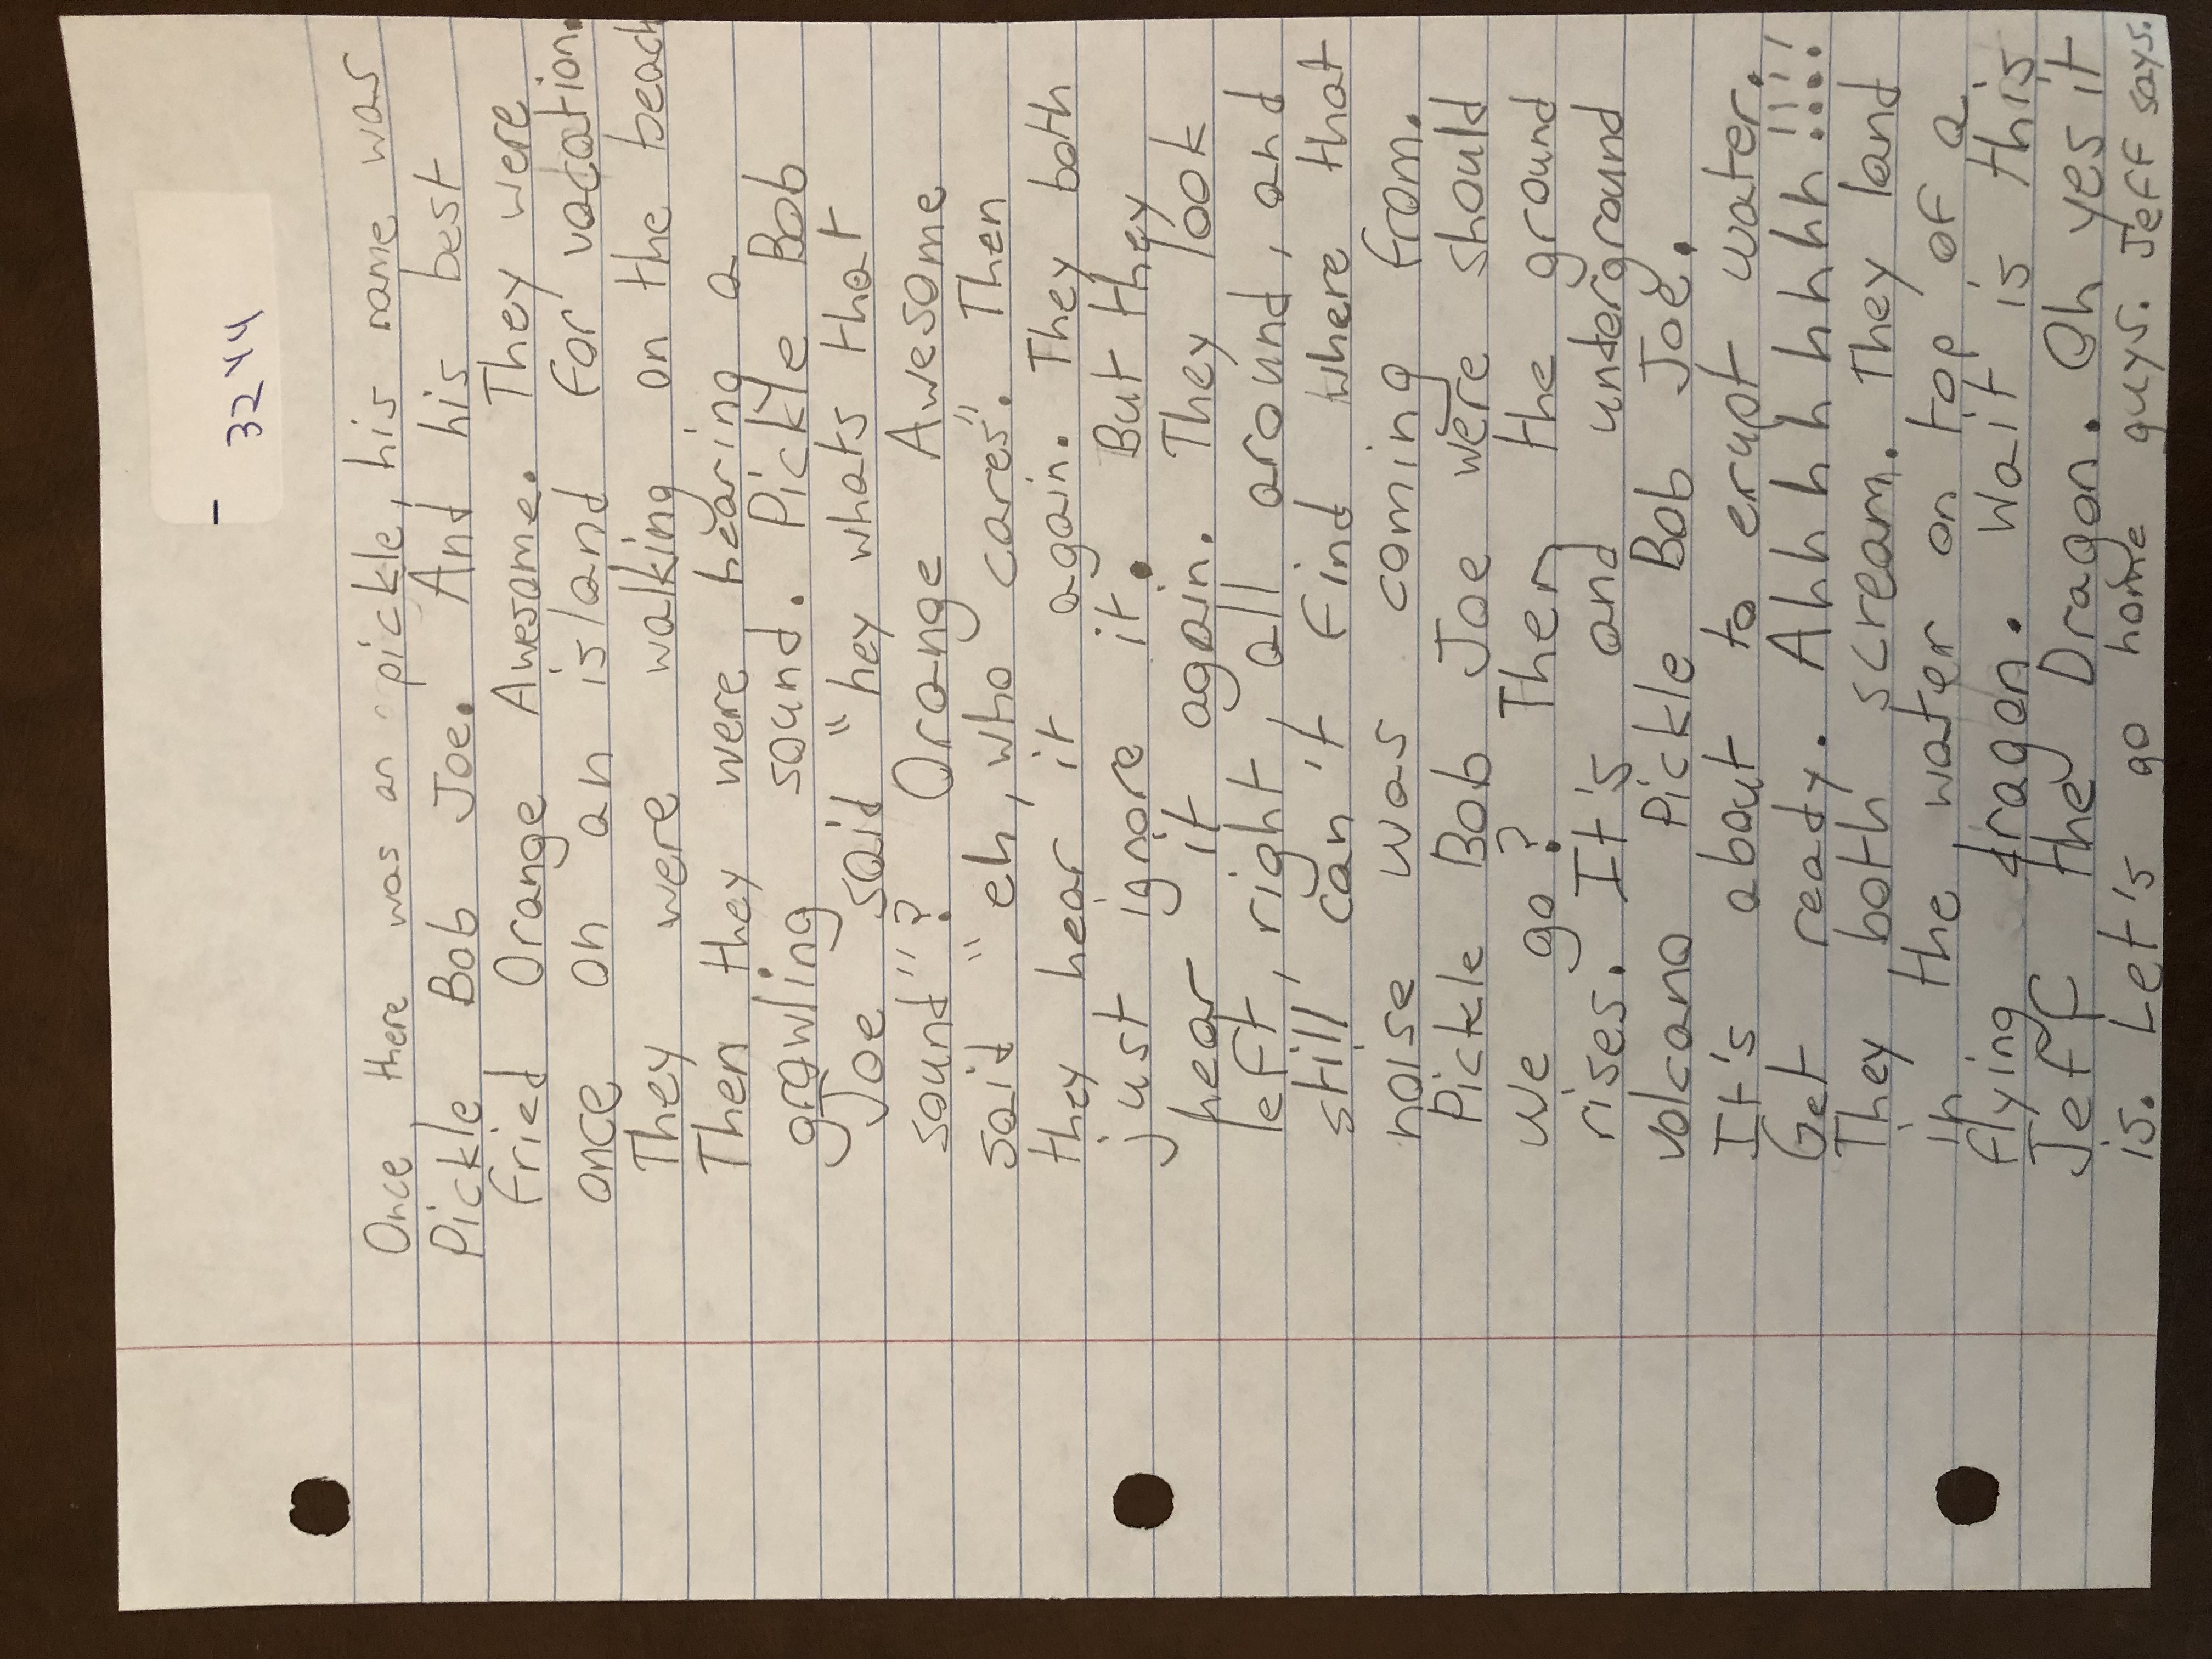 3244
Once there was an pickle, his name was
Pickle Bob Joe. And his best
fried Orange Awesome. They were
once on an island for vacation.
They were walking on the beach
Then they were hearing a
growling sound. Pickle Bob
Joe said "hey whats that
sound"? Orange Awesome
said "eh, who cares". Then
they hear it again. They both
just ignore it. But they
hear it again. They look
left, right, all around, and
still can't find where that
noise was coming from.
Pickle Bob Joe were should
we go? Then the ground
rises. It's and underground
volcano Pickle Bob Joe.
It's about to erupt water.
Get ready. Ahhhhhhhh!!!!
They both scream. They land
in the water on top of a
flying dragon. Wait is this
Jeff the Dragon. Oh yes it
is. Let's go home guys. Jeff says.